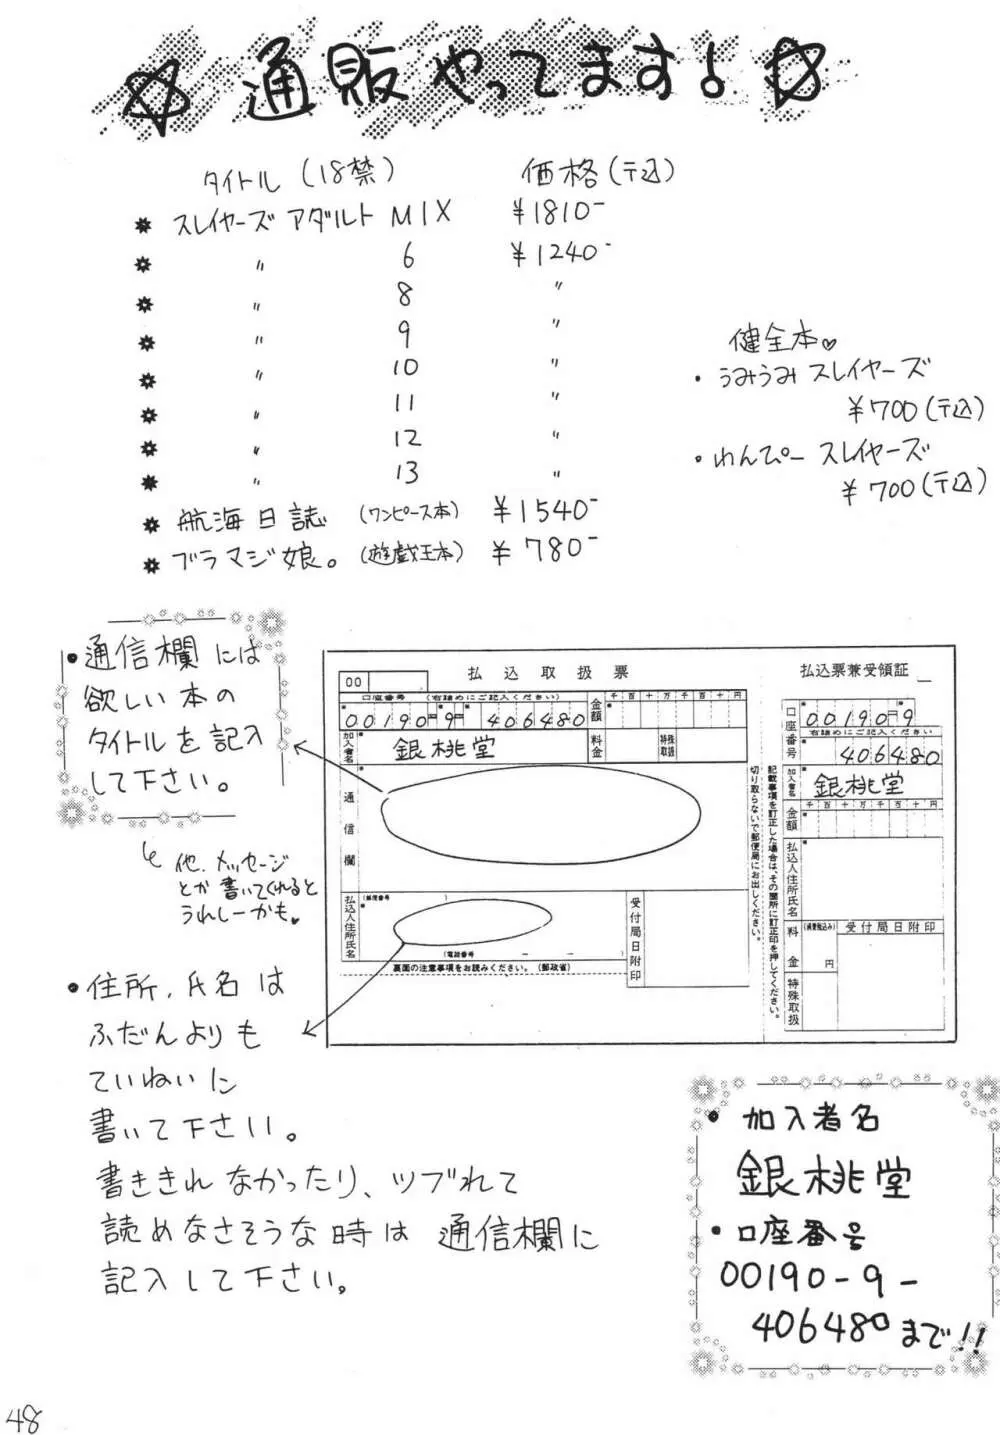 ☆通販やってます!☆
タイトル(18禁) 価格(〒込)
スレイヤーズ アダルト MIX ¥1810-
〃 6 ¥1240-
〃 8 〃
〃 9 〃
〃 10 〃
〃 11 〃
〃 12 〃
〃 13 〃
航海日誌 (ワンピース本) ¥1540-
ブラマジ娘。(遊戯王本) ¥780-
健全本♥
・うみうみ スレイヤーズ
¥700(〒込)
・わんぴー スレイヤーズ
¥700(〒込)
・通信欄には
欲しい本の
タイトルを記入
して下さい。
他、メッセージ
とか書いてくれると
うれしーかも♥
・住所、氏名は
ふだんよりも
ていねいに
書いて下さい。
書ききれなかったり、ツブれて
読めなさそうな時は 通信欄に
記入して下さい。
00
払込取扱票
口座番号 (右詰めにご記入ください)
00190 9 406480
金額
千百十万千百十円
加入者名
銀桃堂
料金
特殊取扱
通信欄
払込人住所氏名
(郵便番号 )
(電話番号 - - )
受付局日附印
裏面の注意事項をお読みください。(郵政省)
切り取らないで郵便局にお出しください。
記載事項を訂正した場合は、その箇所に訂正印を押してください。
払込票兼受領証
口座番号
00190 9
右詰めにご記入ください
406480
加入者名
銀桃堂
金額
千百十万千百十円
払込人住所氏名
料金
(消費税込み)
円
受付局日附印
特殊取扱
・加入者名
銀桃堂
・口座番号
00190-9-
406480まで!!
48